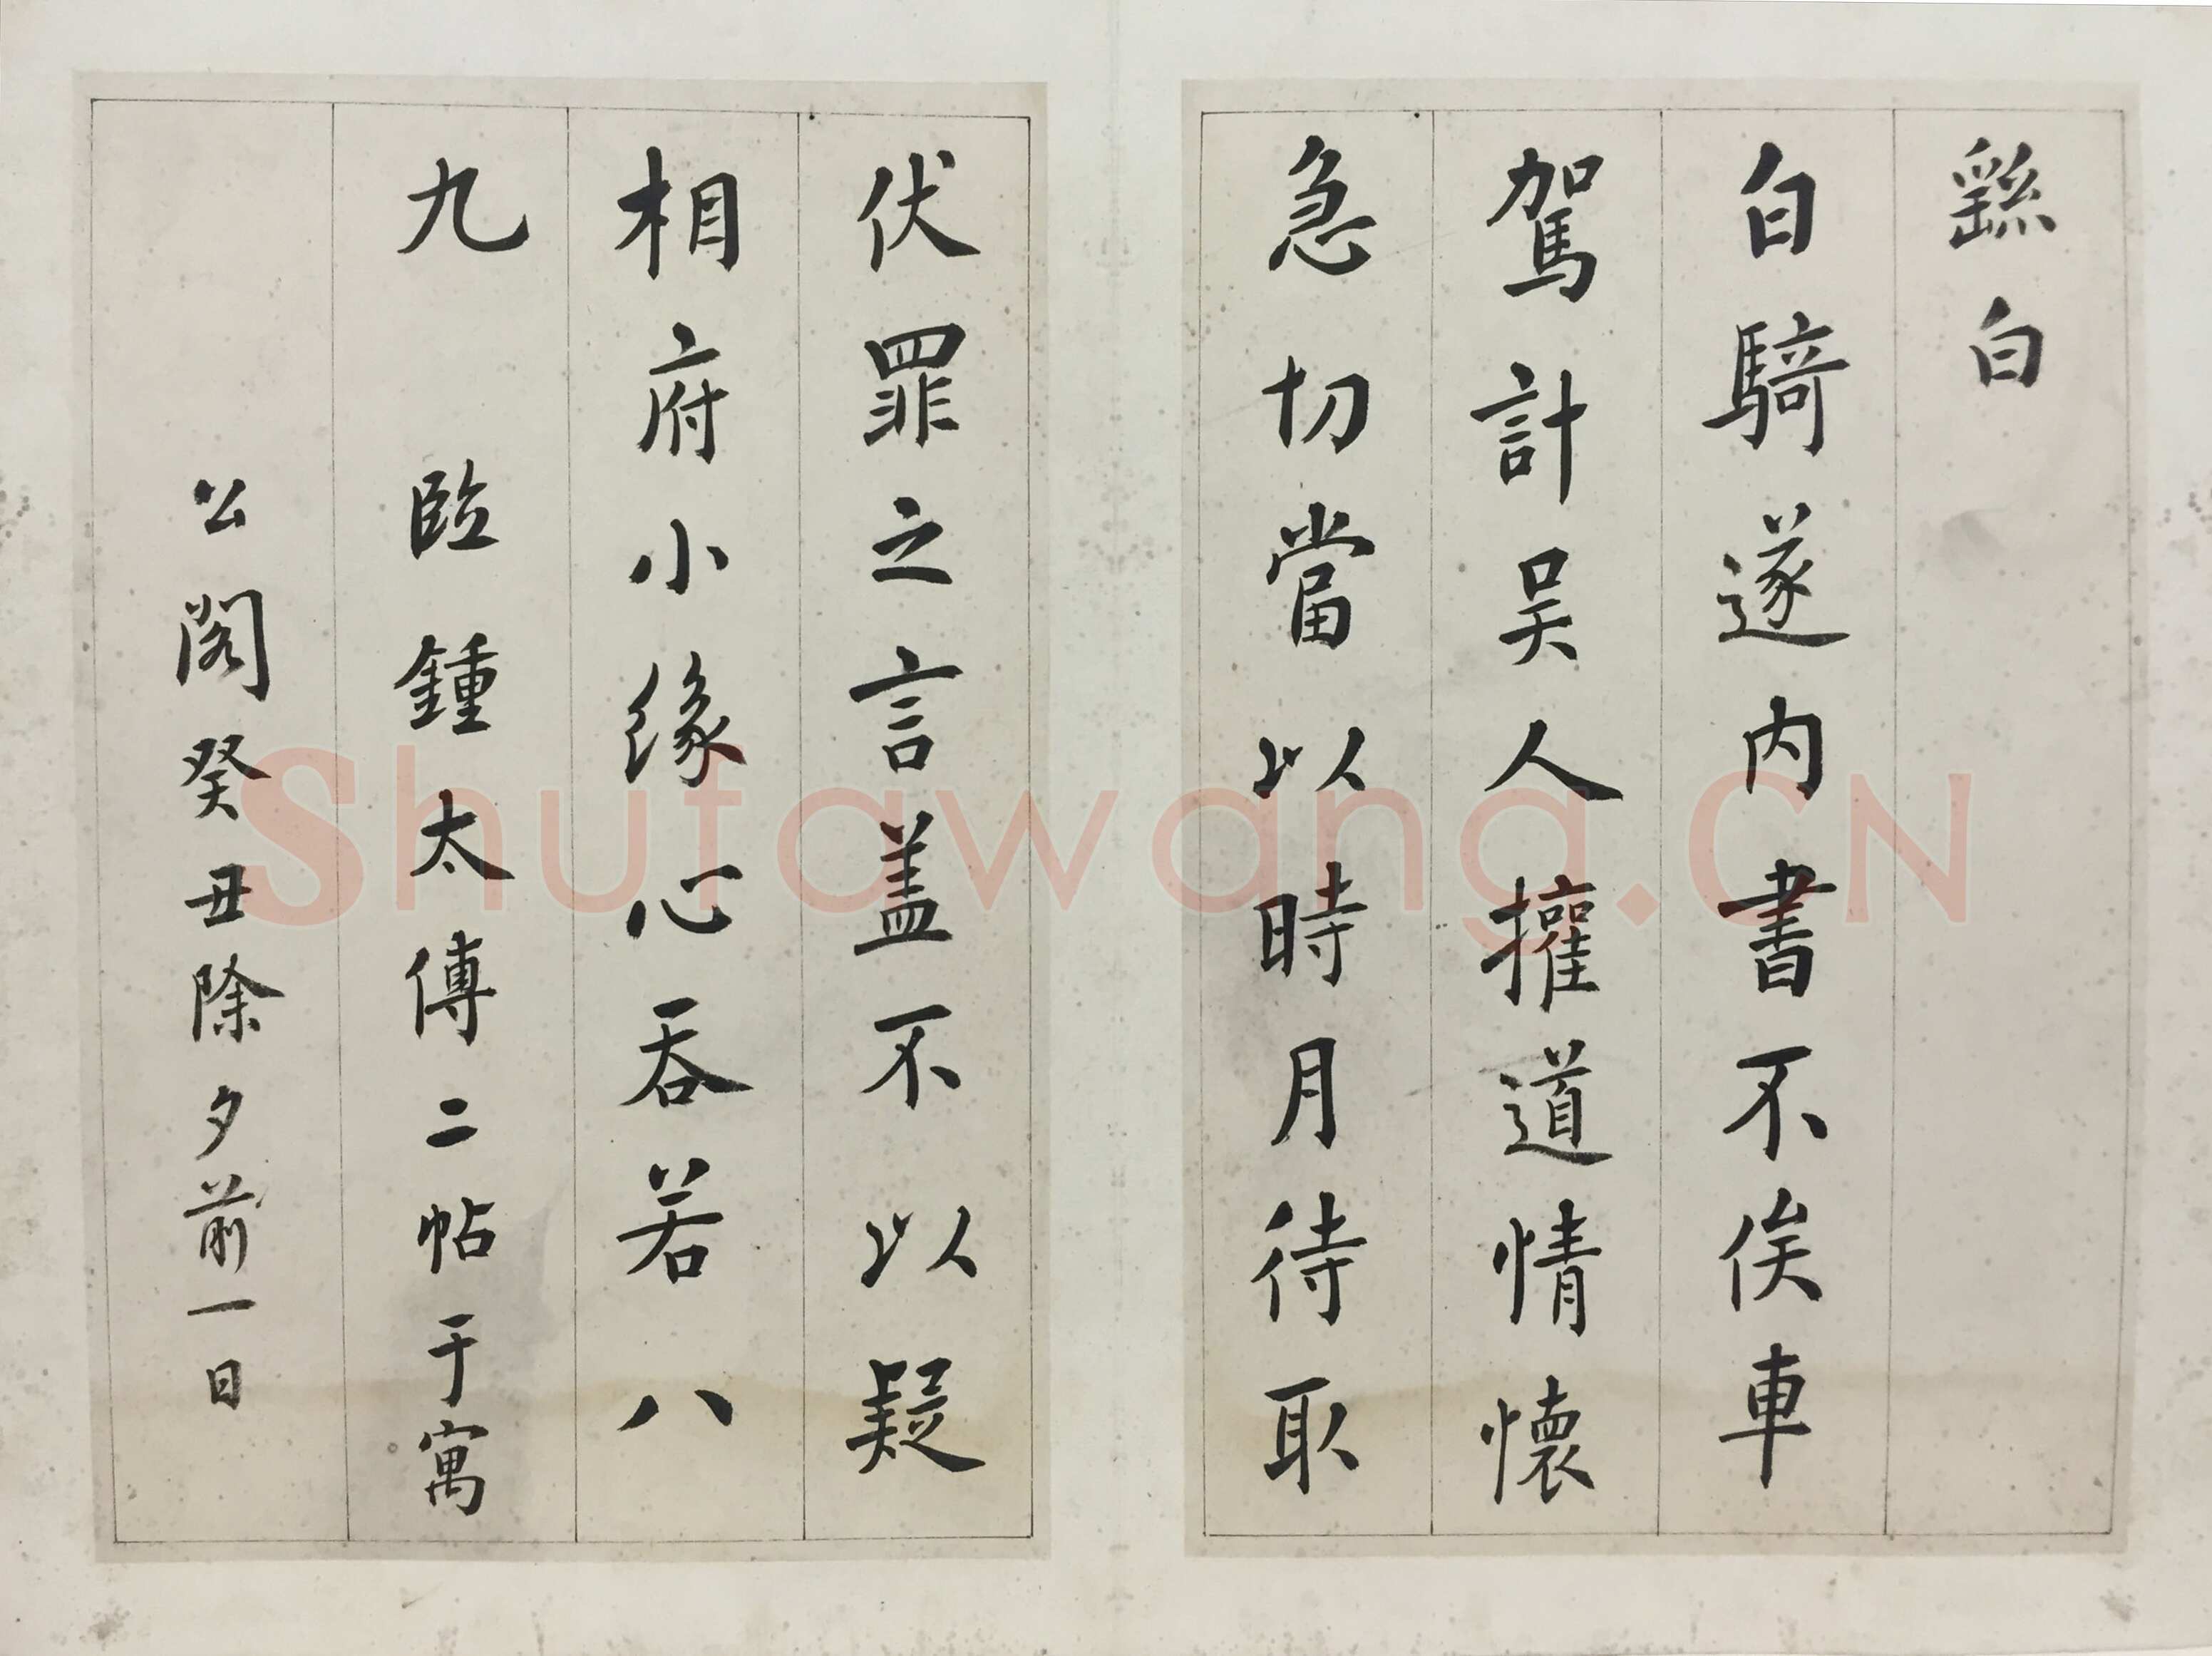 繇白
白騎遂內書不俟車
駕計吴人擁道情懷
急切當以時月待取
伏罪之言盖不以疑
相府小緣心吞若八
九　臨鍾太傅二帖于寓
公閣癸丑除夕前一日
Shufawang.CN